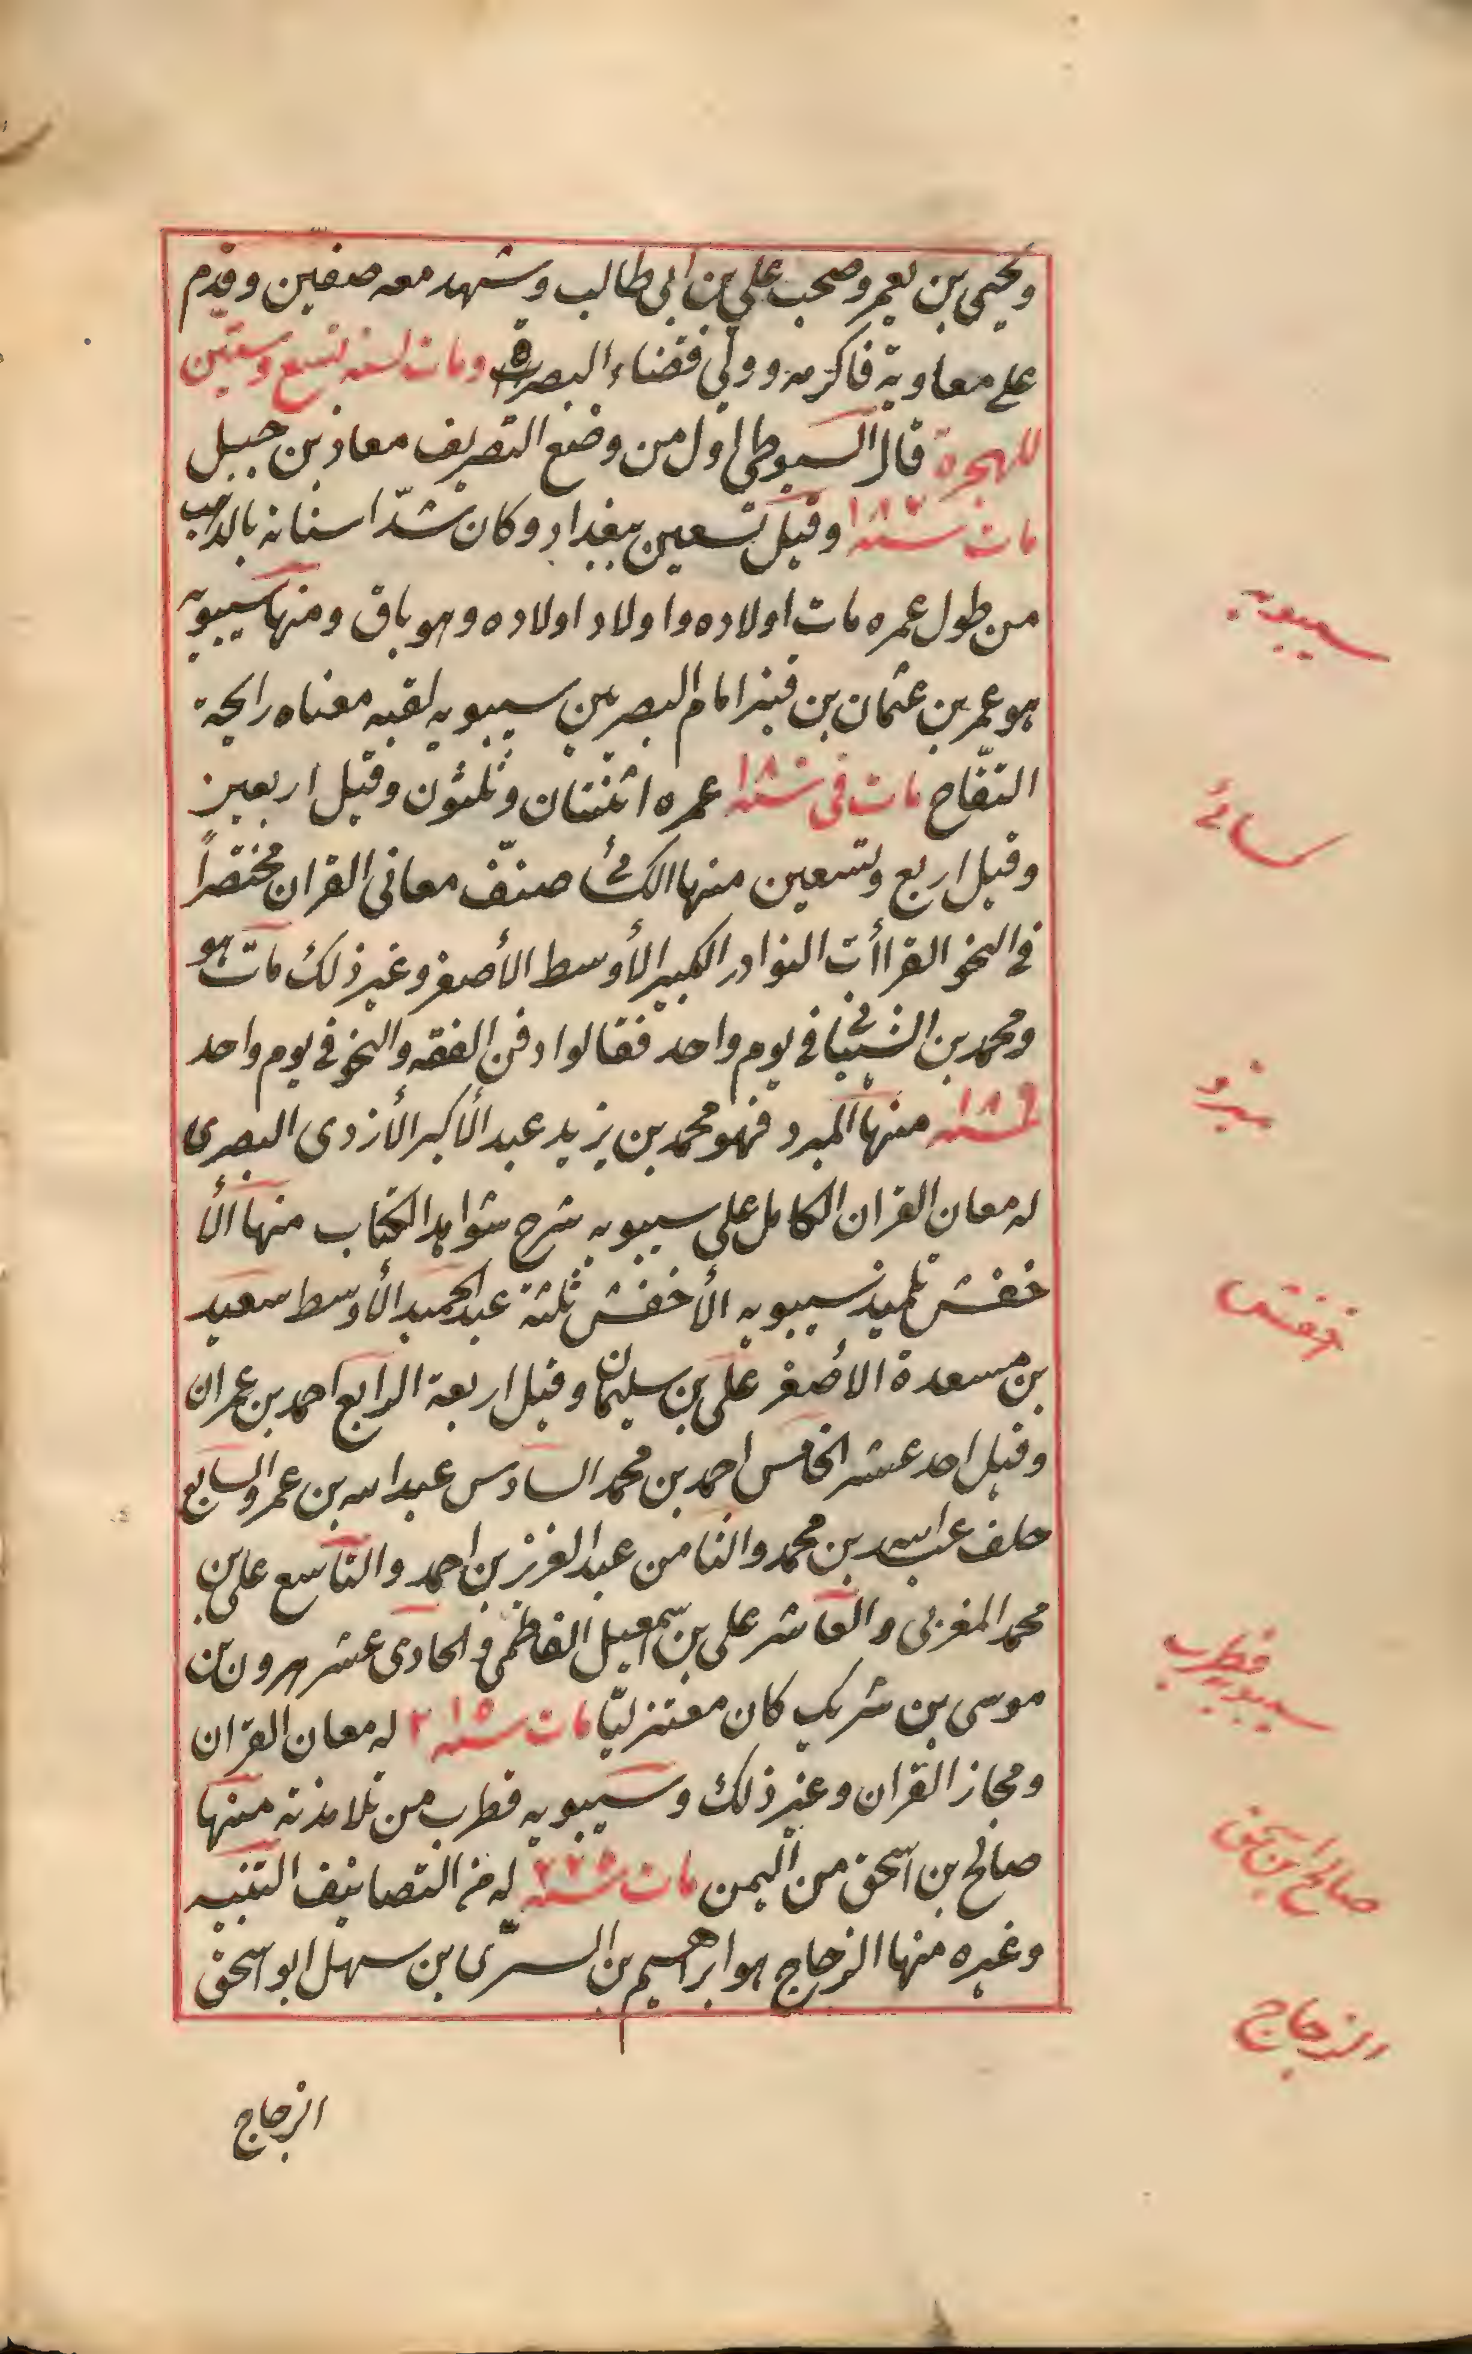 ويحيى بن يعمر وصحب علي بن ابي طالب وشهد معه صفين وقدم
على معاوية فاكرمه وولي قضاء البصرة ومات لسنه تسع وستين
للهجرة قال السيوطي اول من وضع التصريف معاد بن جبيل
مات سنه وقيل تسعين ببغداد وكان شدّ اسنانه بالذهب
من طول عمره مات اولاده واولاد اولاده وهو باق ومنها سيبويه
سيبويه
هو عمر بن عثمان بن قنبر امام البصريين سيبويه لقبه معناه رايحة
التفّاح مات في سنه عمره اثنتان وثلثون وقيل اربعين
كسائے
وقيل اربع وتسعين منها الكسائي صنّف معاني القران مختصراً
في النحو القراأت النوادر الكبير الأوسط الأصغر وغير ذلك مات هو
ومحمد بن الشيباني في يوم واحد فقالوا دفن الفقه والنحو في يوم واحد
سنه منها المبرد فهو محمد بن يزيد عبد الأكبر الأزدي البصري
له معان القران الكامل على سيبويه شرح شواهد الكتاب منها الأ
خفش تلميذ سيبويه الأخفش ثلثة عبد الحميد الأوسط سعيد
خفش
بن مسعدة الاصغر علي بن سليمان وقيل اربعة الرابع احمد بن عمران
وقيل احد عشر الخامس احمد بن محمد السادس عبد الله بن عمر والسابع
خلف عبد الله بن محمد والثامن عبد العزيز بن احمد والتاسع علي بن
محمد المغربي والعاشر علي بن سمعيل الفاطمي والحادي عشر هرون بن
قطرب
موسى بن شريك كان معتزليّا مات سنه له معان القران
سيبويه
ومجاز القران وغير ذلك وسيبويه قطرب من تلامذته منها
صالح بن اسحق من اليمن مات سنه ٢٢٥ له من التصانيف التنبيه
صالح ابن اسحق
وغيره منها الزجاج هو ابراهيم بن السرّي بن سهل ابو اسحق
الزجاج
الزجاج